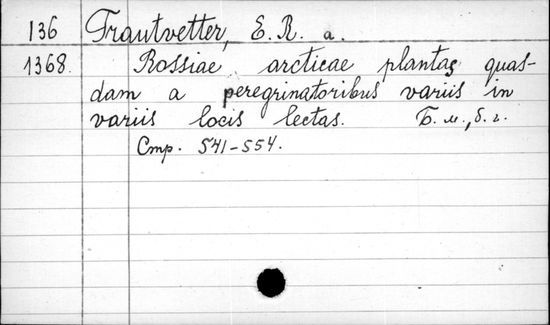 136 Trautvetter, E. R. a.
1368. Rossiae arcticae plantas quas-
dam a peregrinatoribus variis in
variis locis lectas. Б. м., б. г.
Стр. 541-554.